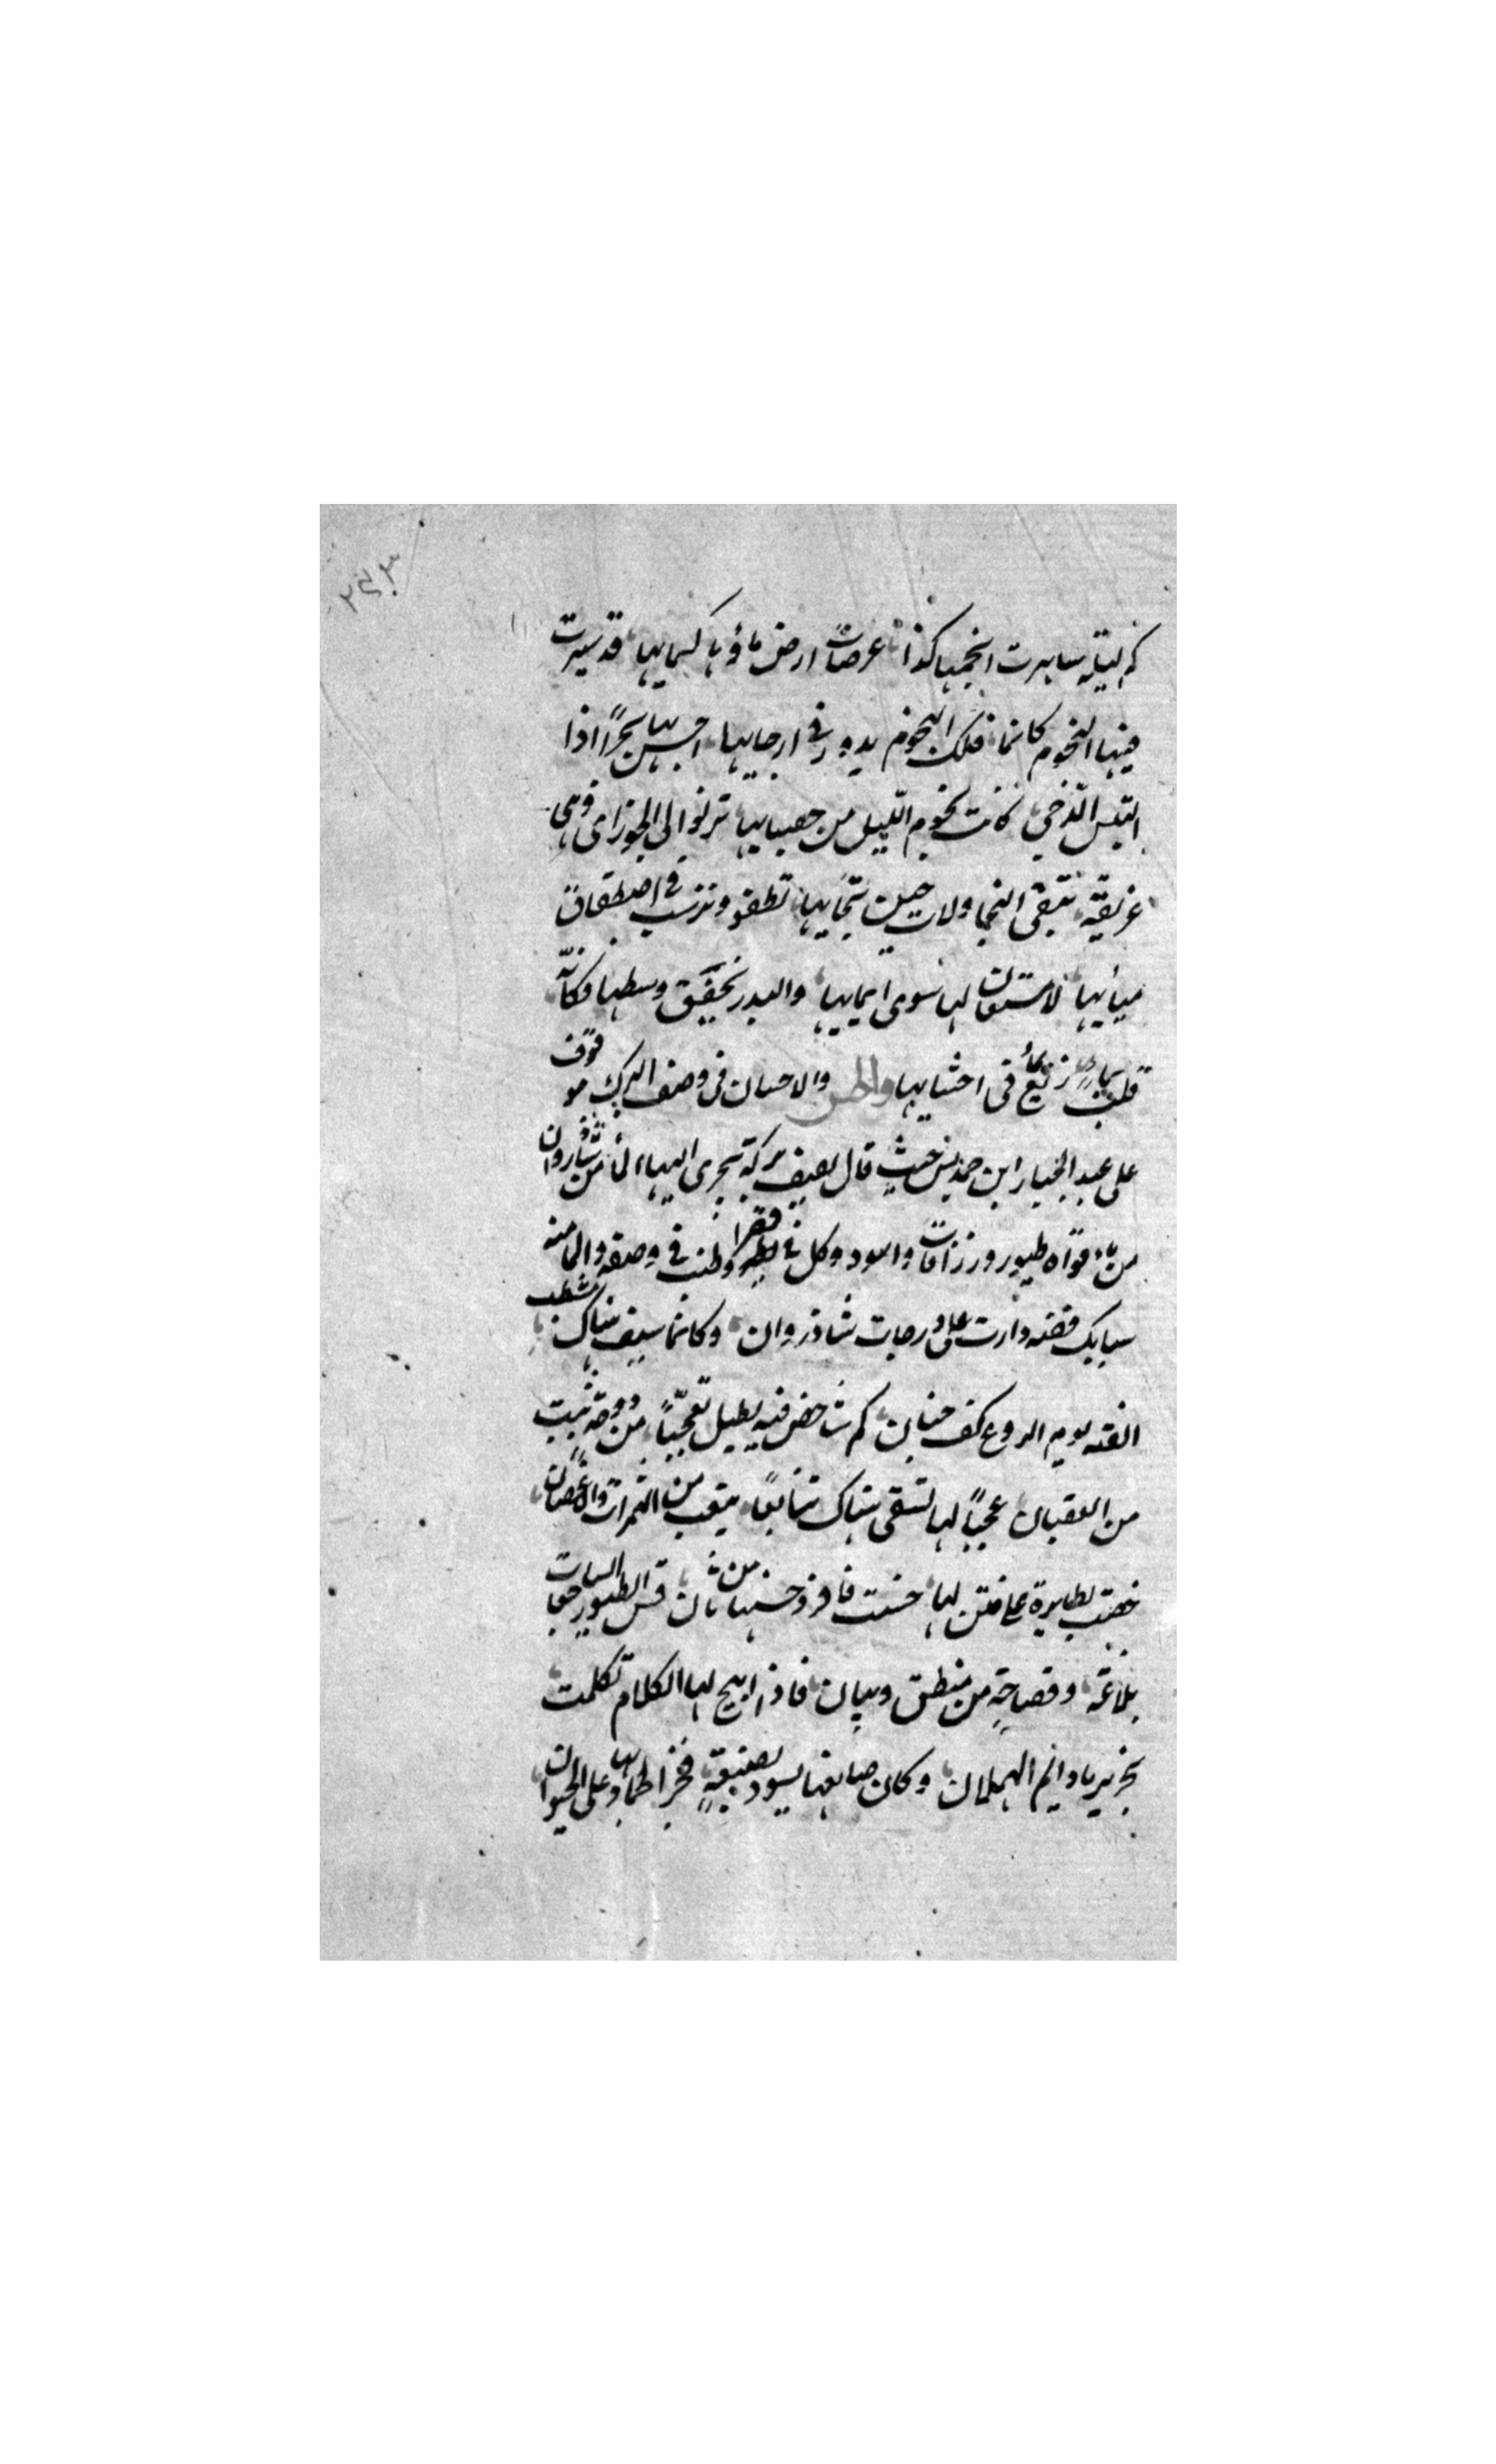 ٢٤٣
كم ليلة سايرت انجمها كذا عرصات ارض ماؤها كسمايها قد سيرت
فيها النجوم كانما فلك النجوم يدور في ارجايها احسن بها بحرا اذا
التبس الدجي كانت نجوم الليل من حصبايها ترنو الى الجوزا وهي
غريقة تبغى النجا ولات حين نجايها تطفو وترسب في اصطفاق
ميايها لا مستعان لها سوى ايمايها والبدر يخفق وسطها فكانه
قلب لها ريع في احشايها والاحسان في وصف البرك موقوف
على عبد الجبار ابن حمديس حيث قال يصف بركة تجرى اليها الماء من شاذروان
من افواه طيور وزرافات واسود وكل في وصفه والماء منه
سبايك فضة ذابت على درجات شاذروان وكانما سيف هناك مشطب
القته يوم الروع كف جبان كم شاخص فيه يطيل تعجبا من دوحة نبتت
من العقيان عجبا لها تسقى هناك ينابعا ينعت من الثمرات والاغصان
خصت بطايرة على فنن لها حسنت فافرد حسنها من ثان قس الطيور الساجعات
بلاغة وفصاحة من منطق وبيان فاذا ابيح لها الكلام تكلمت
بخرير ماء دايم الهملان وكان صانعها يسود بصنعة فخر الجماد بها على الحيوان